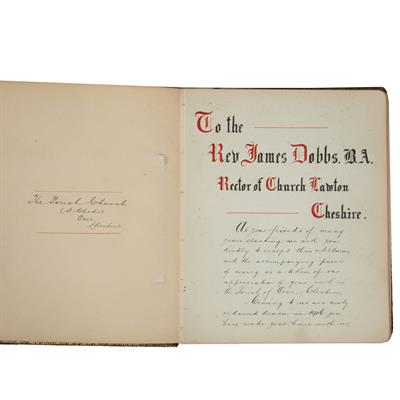 The Parish Church
(St Chads)
Over
Cheshire
To the
Rev James Dobbs. B.A.
Rector of Church Lawton
Cheshire.
As your friends of many
years standing we ask you
kindly to accept this album
and the accompanying purse
of money as a token of our
appreciation of your work in
the Parish of Over, Cheshire.
Coming to us as a newly
ordained deacon in 1906 you
have made your home with us,